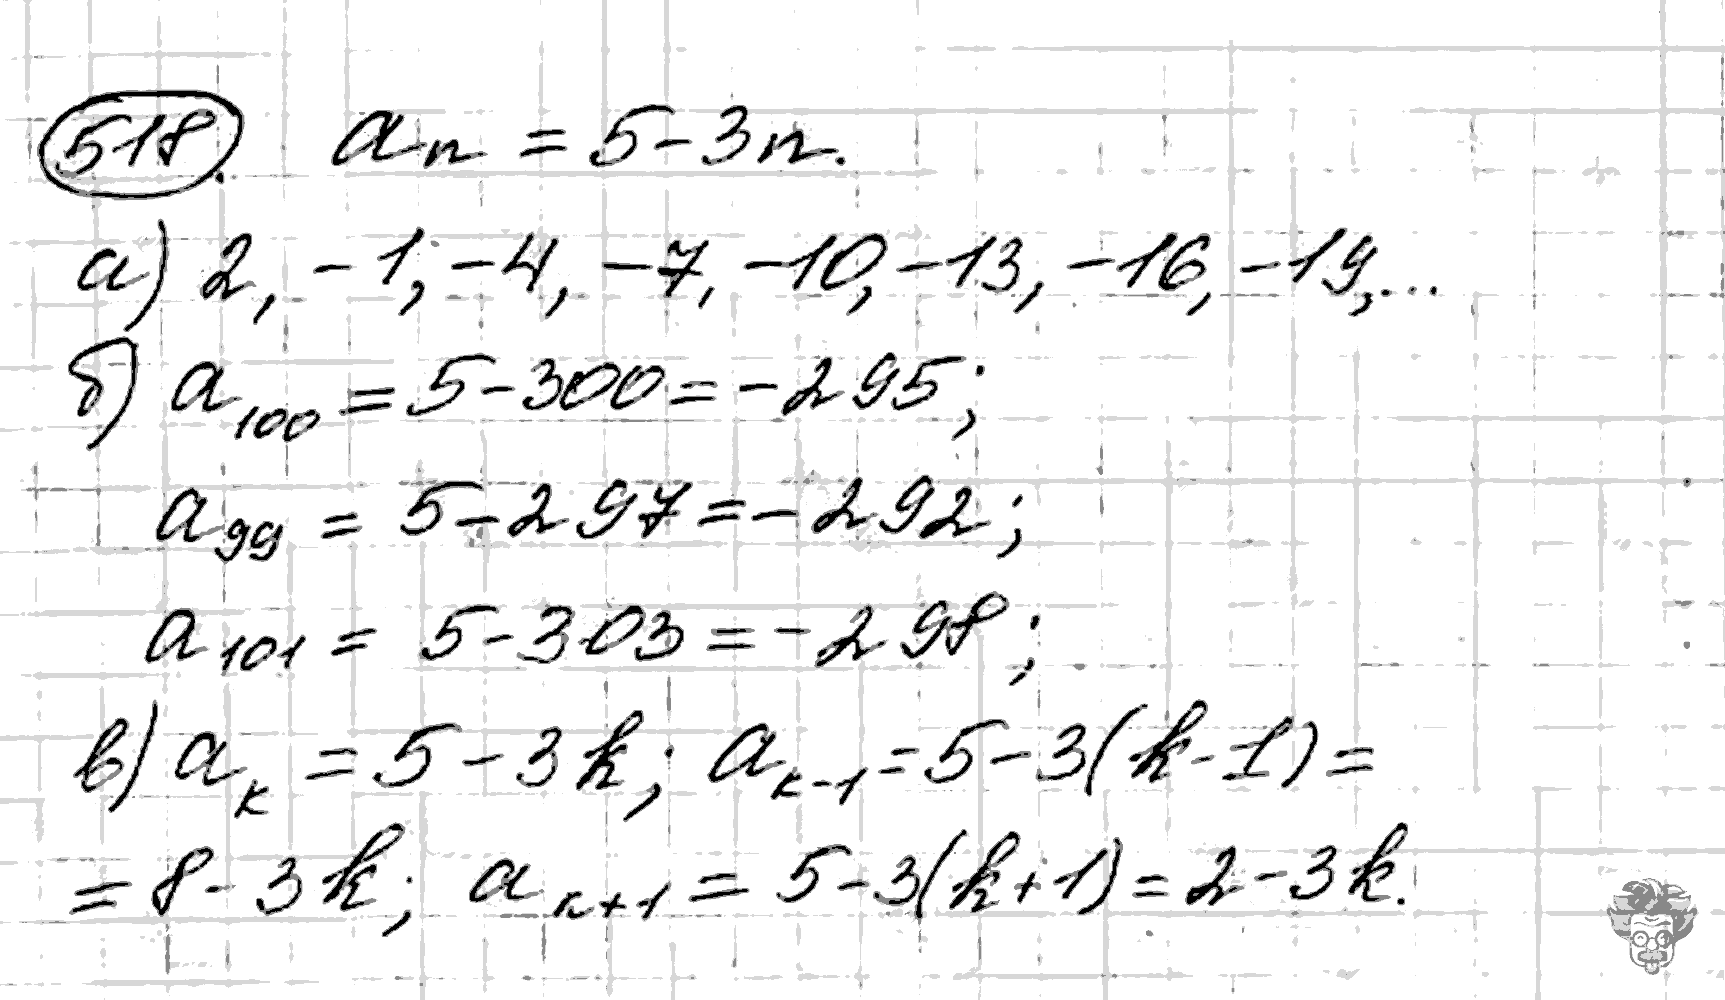 518. aₙ = 5-3n.
а) 2, -1, -4, -7, -10, -13, -16, -19,...
б) a₁₀₀ = 5-300 = -295;
a₉₉ = 5-297 = -292;
a₁₀₁ = 5-303 = -298;
в) aₖ = 5-3k; aₖ₋₁ = 5-3(k-1) =
= 8-3k; aₖ₊₁ = 5-3(k+1) = 2-3k.